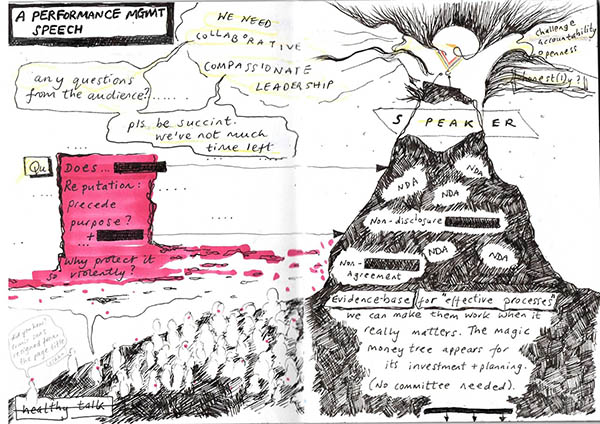 A PERFORMANCE MGMT
SPEECH
WE NEED
COLLABORATIVE
COMPASSIONATE
LEADERSHIP
any questions
from the audience?
pls. be succint.
we've not much
time left
Qu
Does...
Reputation:
precede
purpose?
+
...
Why protect it
so violently?
healthy talk
challenge
accountability
openness
honest(l)y?
SPEAKER
NDA
NDA
NDA
NDA
Non-disclosure
NDA
NDA
Non-
Agreement
Evidence-base for "effective processes"
we can make them work when it
really matters. The magic
money tree appears for
its investment + planning.
(No committee needed).